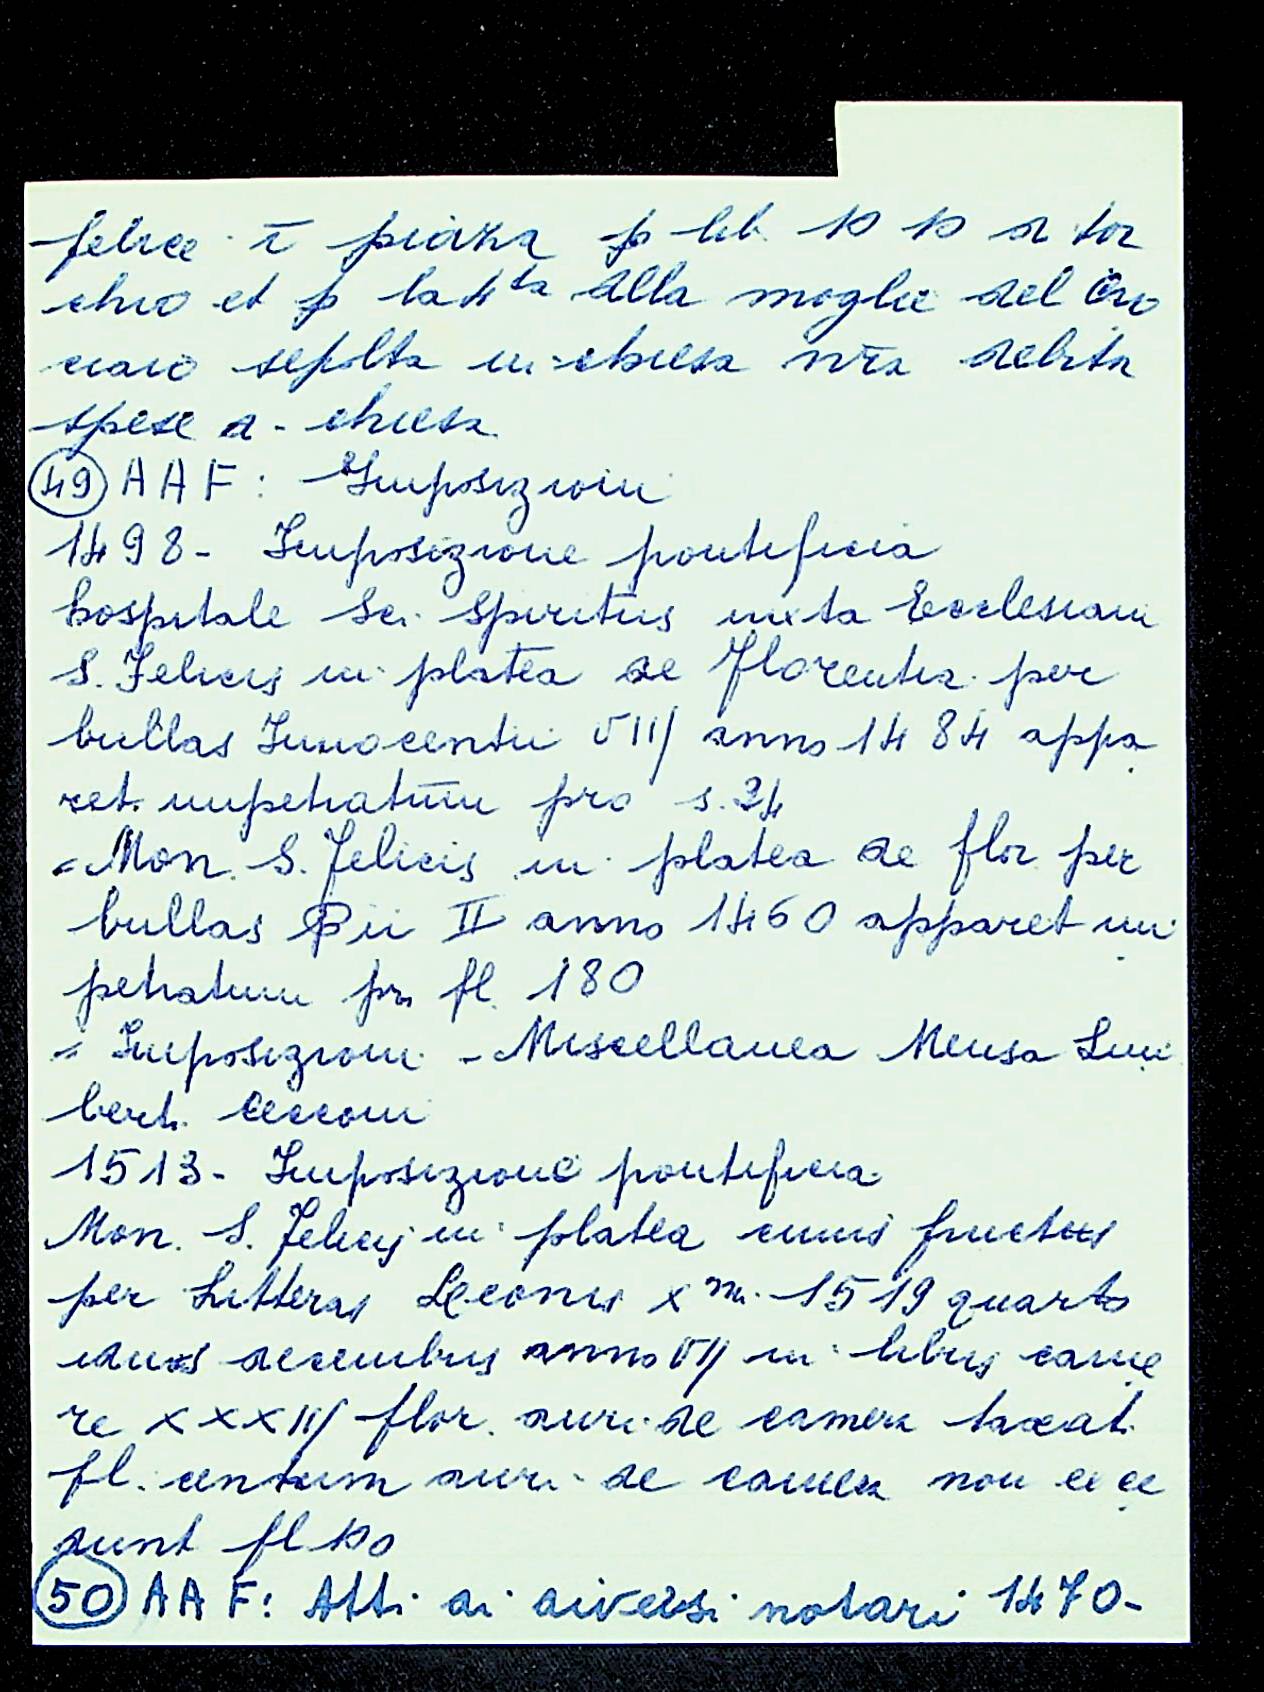 felice ī piazza p lib. 10 10 a tor
chio et p la 4ta Alla moglie del Cro
ciaio sepolta in chiesa nr̄a debita
spese a chiesa
49 AAF: Imposizioni
1498- Imposizione pontificia
hospitale Sci. Spiritus iuxta Ecclesiam
S. Felicis in platea de Florentia per
bullas Innocentii VIII anno 1484 appa
ret. impetratum pro s. 24
= Mon. S. Felicis in platea de flor per
bullas Pii II anno 1460 apparet im
petratum pro fl. 180
= Imposizioni - Miscellanea Mensa Lim
bert. Cecconi
1513- Imposizione pontificia
Mon. S. Felicis in platea cuius fructus
per Litteras Leonis Xmi. 1519 quarto
idus decembris anno VII in libris came
re XXXIII flor. auri de camera taxat.
fl. centum auri de camera non exce
dunt fl 100
50 AAF: Atti di diversi notari 1470-